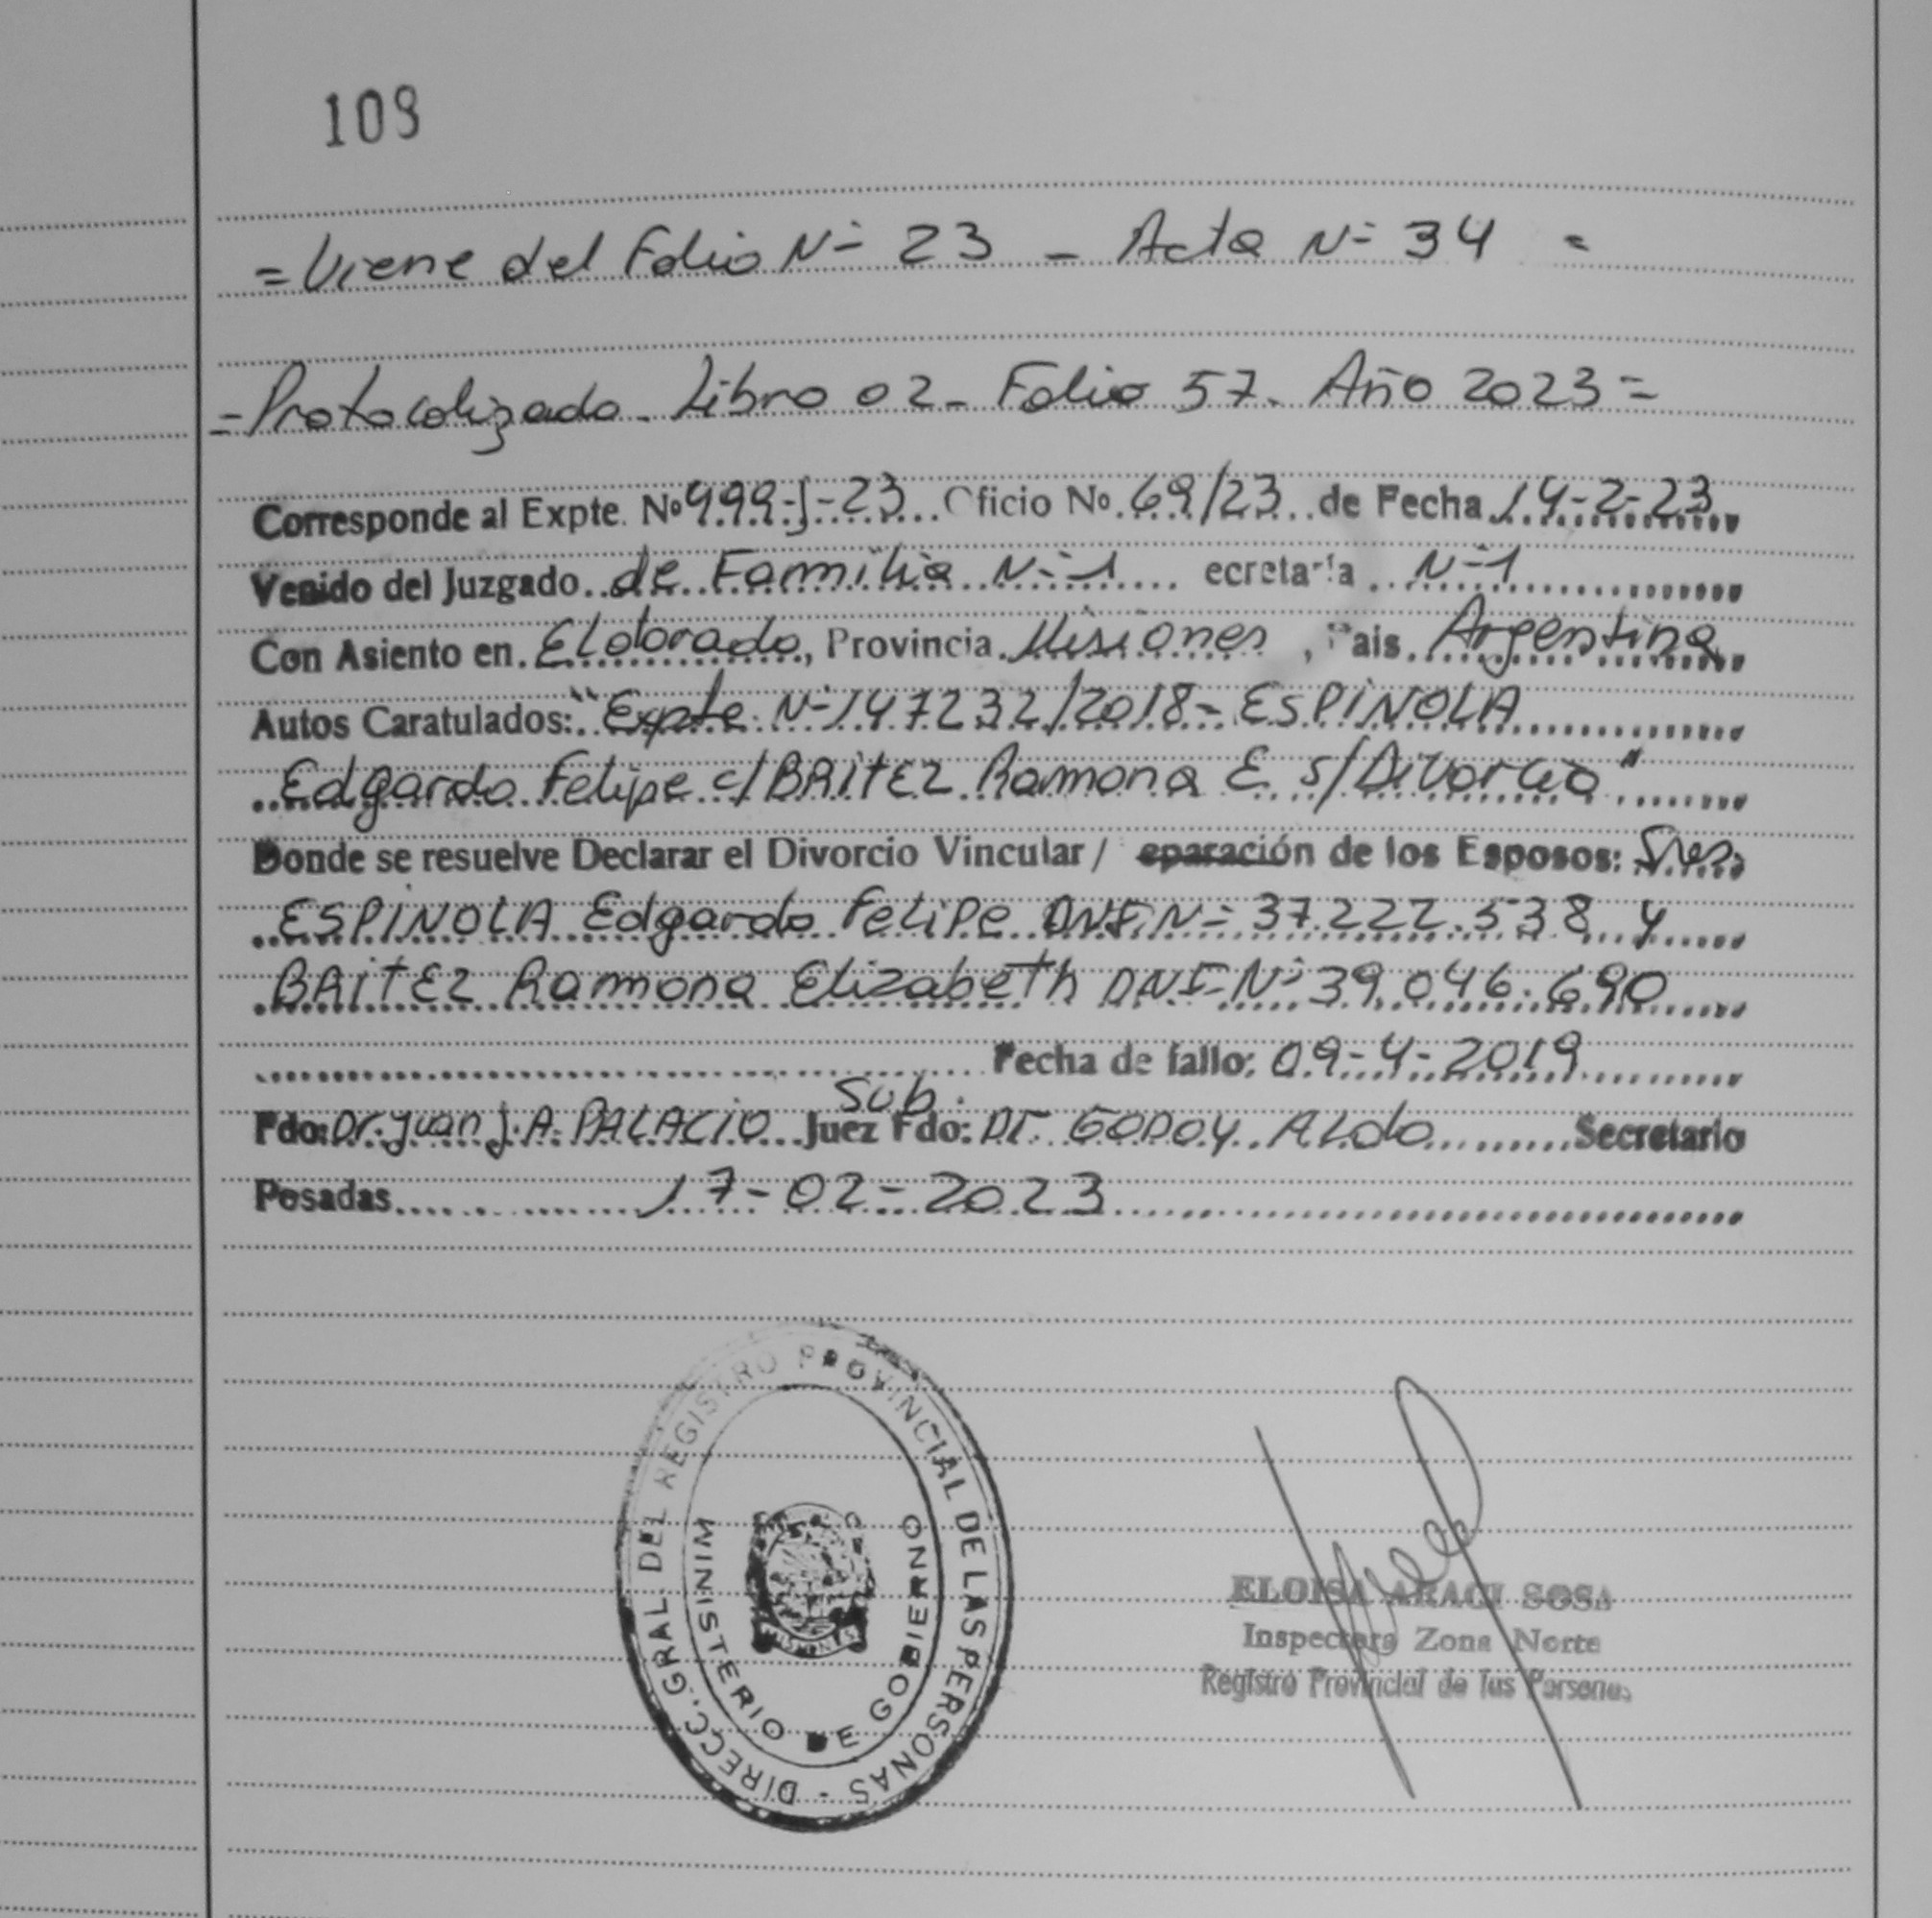 109
= Viene del Folio Nº 23 - Acta Nº 34 =
= Protocolizado - Libro 02 - Folio 57. Año 2023 =
Corresponde al Expte. Nº 999-J-23 Oficio No. 69/23 de Fecha 14-2-23
Venido del Juzgado de Familia Nº 1 ecretaria Nº 1
Con Asiento en Eldorado, Provincia Misiones, Pais Argentina
Autos Caratulados: "Expte Nº 147232/2018 - ESPINOLA
Edgardo Felipe c/ BRITEZ Ramona E. s/ Divorcio"
Donde se resuelve Declarar el Divorcio Vincular / eparación de los Esposos: Sres.
ESPINOLA Edgardo Felipe DNI Nº 37.222.538 y
BRITEZ Ramona Elizabeth DNI Nº 39.046.690
Fecha de fallo: 09-4-2019
Sub.
Fdo: Dr. Juan J. A. PALACIO Juez Fdo: Dr. GODOY Aldo Secretario
Posadas 17-02-2023
DIRECC. GRAL DEL REGISTRO PROVINCIAL DE LAS PERSONAS -
MINISTERIO DE GOBIERNO
ELOISA ARACI SOSA
Inspectora Zona Norte
Registro Provincial de las Personas